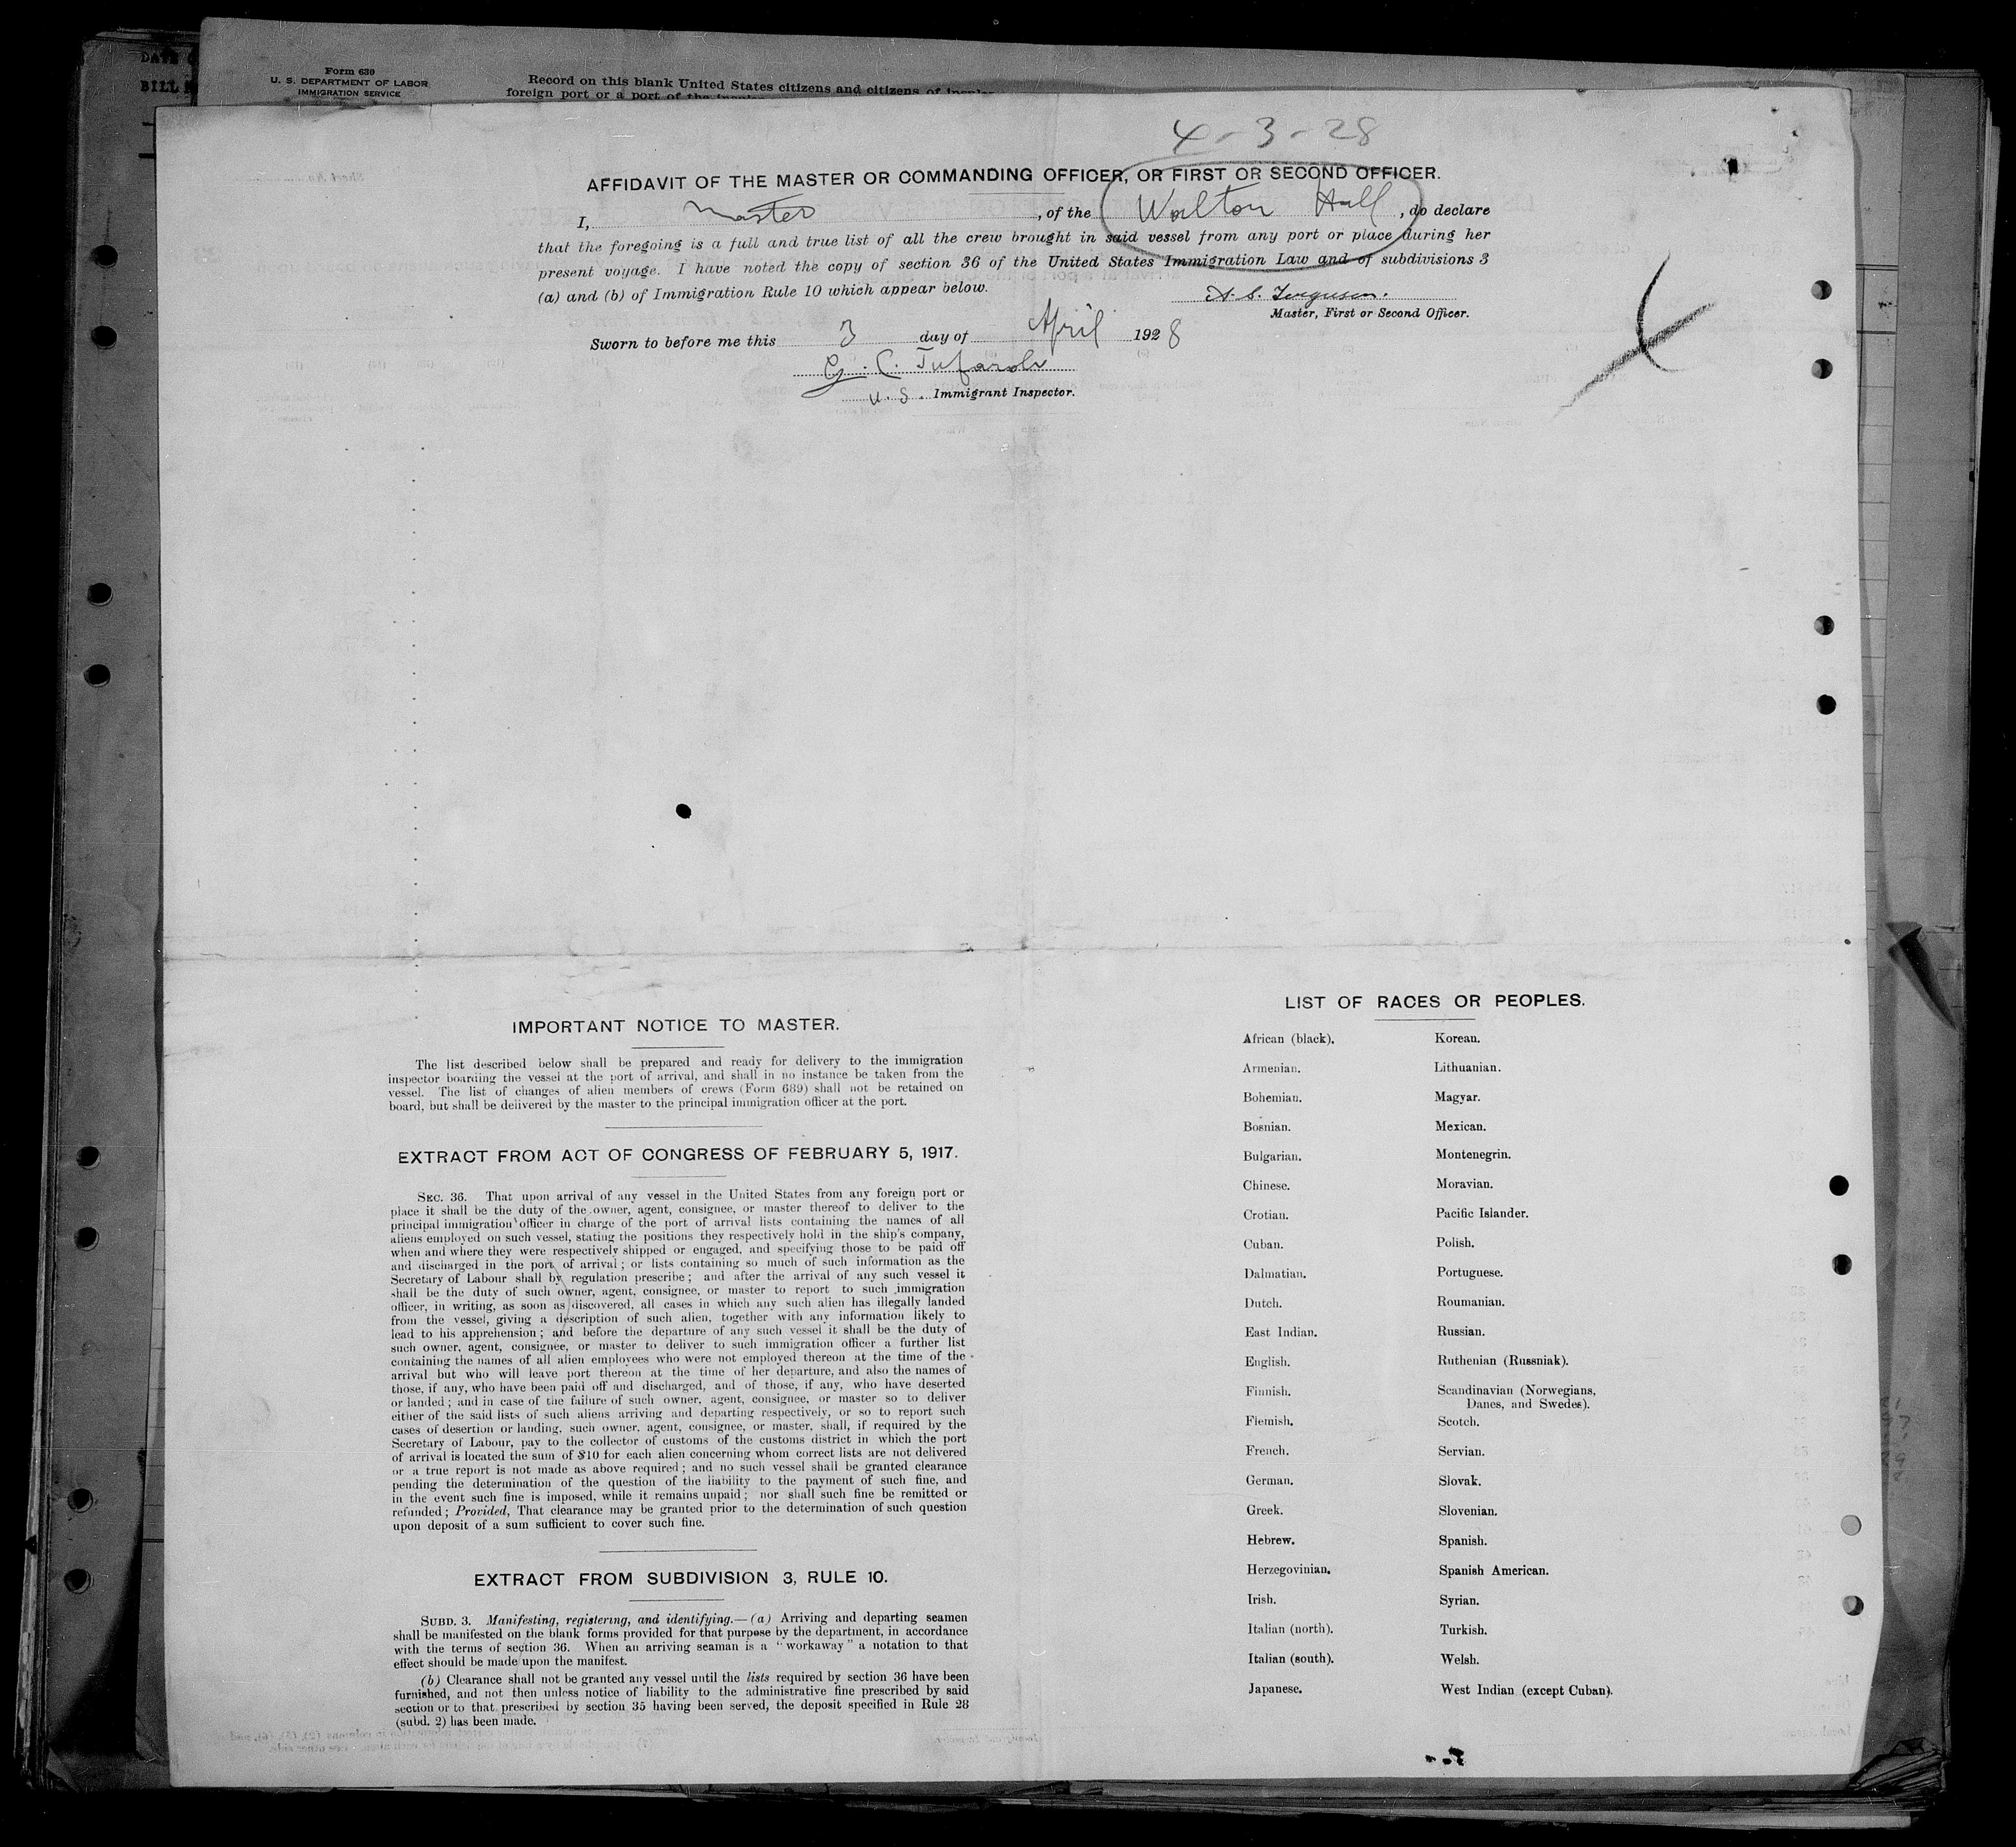 DATE
BILL
Form 630
U. S. DEPARTMENT OF LABOR
IMMIGRATION SERVICE
Record on this blank United States citizens and citizens of
foreign port or a port of the
4-3-28
AFFIDAVIT OF THE MASTER OR COMMANDING OFFICER, OR FIRST OR SECOND OFFICER.
I, Master, of the Walton Hall, do declare
that the foregoing is a full and true list of all the crew brought in said vessel from any port or place during her
present voyage. I have noted the copy of section 36 of the United States Immigration Law and of subdivisions 3
(a) and (b) of Immigration Rule 10 which appear below.
A. S. Ferguson.
Master, First or Second Officer.
Sworn to before me this 3 day of April 1928
G. C.
U. S. Immigrant Inspector.
IMPORTANT NOTICE TO MASTER.
The list described below shall be prepared and ready for delivery to the immigration
inspector boarding the vessel at the port of arrival, and shall in no instance be taken from the
vessel. The list of changes of alien members of crews (Form 689) shall not be retained on
board, but shall be delivered by the master to the principal immigration officer at the port.
EXTRACT FROM ACT OF CONGRESS OF FEBRUARY 5, 1917.
SEC. 36. That upon arrival of any vessel in the United States from any foreign port or
place it shall be the duty of the owner, agent, consignee, or master thereof to deliver to the
principal immigration officer in charge of the port of arrival lists containing the names of all
aliens employed on such vessel, stating the positions they respectively hold in the ship's company,
when and where they were respectively shipped or engaged, and specifying those to be paid off
and discharged in the port of arrival; or lists containing so much of such information as the
Secretary of Labour shall by regulation prescribe; and after the arrival of any such vessel it
shall be the duty of such owner, agent, consignee, or master to report to such immigration
officer, in writing, as soon as discovered, all cases in which any such alien has illegally landed
from the vessel, giving a description of such alien, together with any information likely to
lead to his apprehension; and before the departure of any such vessel it shall be the duty of
such owner, agent, consignee, or master to deliver to such immigration officer a further list
containing the names of all alien employees who were not employed thereon at the time of the
arrival but who will leave port thereon at the time of her departure, and also the names of
those, if any, who have been paid off and discharged, and of those, if any, who have deserted
or landed; and in case of the failure of such owner, agent, consignee, or master so to deliver
either of the said lists of such aliens arriving and departing respectively, or so to report such
cases of desertion or landing, such owner, agent, consignee, or master, shall, if required by the
Secretary of Labour, pay to the collector of customs of the customs district in which the port
of arrival is located the sum of $10 for each alien concerning whom correct lists are not delivered
or a true report is not made as above required; and no such vessel shall be granted clearance
pending the determination of the question of the liability to the payment of such fine, and
in the event such fine is imposed, while it remains unpaid; nor shall such fine be remitted or
refunded; Provided, That clearance may be granted prior to the determination of such question
upon deposit of a sum sufficient to cover such fine.
EXTRACT FROM SUBDIVISION 3, RULE 10.
SUBD. 3. Manifesting, registering, and identifying.—(a) Arriving and departing seamen
shall be manifested on the blank forms provided for that purpose by the department, in accordance
with the terms of section 36. When an arriving seaman is a "workaway" a notation to that
effect should be made upon the manifest.
(b) Clearance shall not be granted any vessel until the lists required by section 36 have been
furnished, and not then unless notice of liability to the administrative fine prescribed by said
section or to that prescribed by section 35 having been served, the deposit specified in Rule 28
(subd. 2) has been made.
LIST OF RACES OR PEOPLES.
African (black). Korean.
Armenian. Lithuanian.
Bohemian. Magyar.
Bosnian. Mexican.
Bulgarian. Montenegrin.
Chinese. Moravian.
Crotian. Pacific Islander.
Cuban. Polish.
Dalmatian. Portuguese.
Dutch. Roumanian.
East Indian. Russian.
English. Ruthenian (Russniak).
Finnish. Scandinavian (Norwegians,
Danes, and Swedes).
Flemish. Scotch.
French. Servian.
German. Slovak.
Greek. Slovenian.
Hebrew. Spanish.
Herzegovinian. Spanish American.
Irish. Syrian.
Italian (north). Turkish.
Italian (south). Welsh.
Japanese. West Indian (except Cuban).